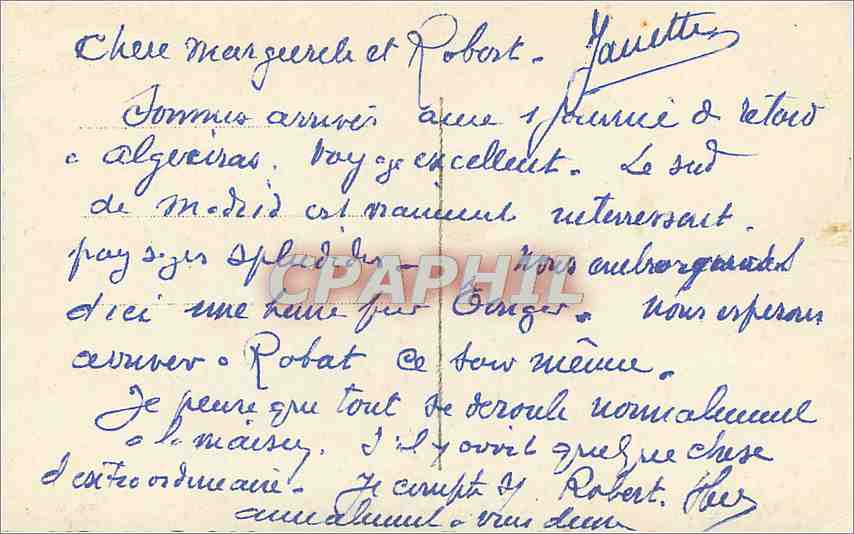 Chere Marguerete et Robert. Janette
Sommes arrivés avec 1 journée de retard
a Algeciras. Voyage excellent. Le sud
de Madrid est vraiment interressant.
paysages splendides. Nous embarquons
d'ici une heure pour Tanger. Nous esperons
arriver a Rabat ce soir même.
Je pense que tout se deroule normalement
a la maison. S'il y avait quelque chose
d'extraordinaire. Je compte Robert.
amicalement a vous deux
CPAPHIL